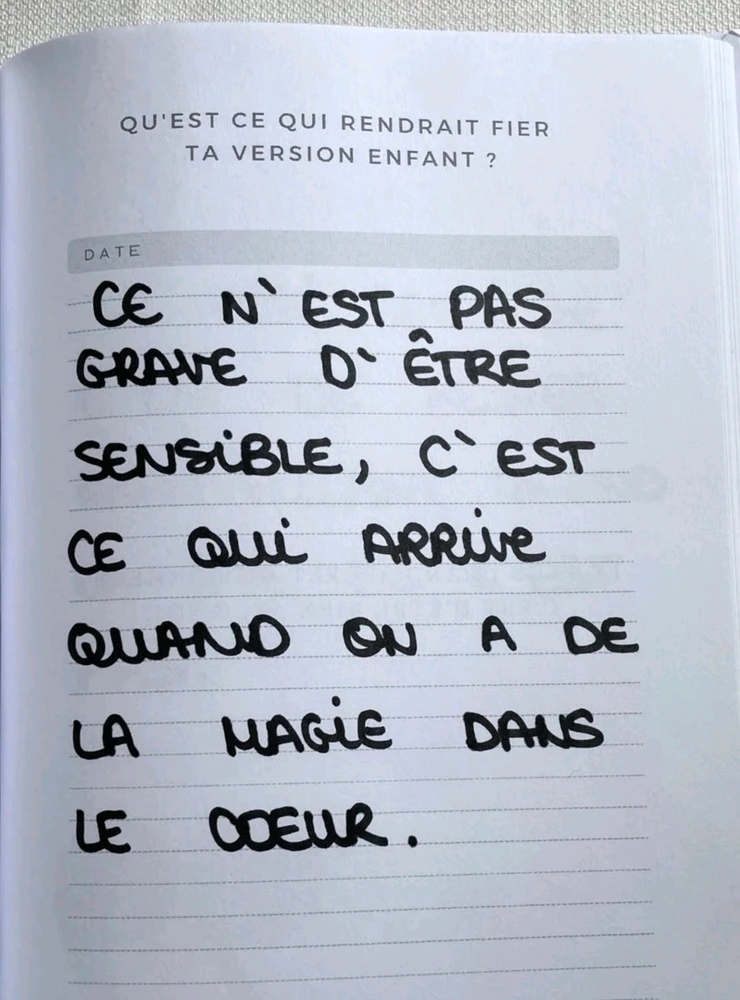 QU'EST CE QUI RENDRAIT FIER
TA VERSION ENFANT ?
DATE
CE N'EST PAS
GRAVE D'ÊTRE
SENSIBLE, C'EST
CE QUI ARRIVE
QUAND ON A DE
LA MAGIE DANS
LE COEUR.